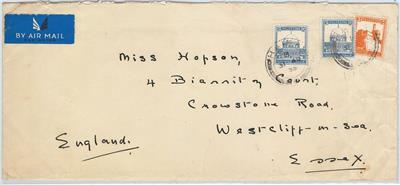 BY AIR MAIL
Miss Hopson,
4 Biarritz Court,
Crowstone Road,
Westcliff-on-Sea.
England.
Essex.